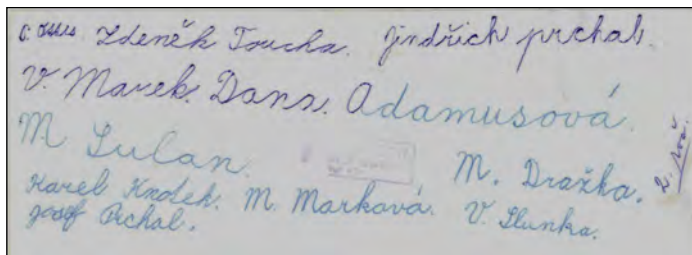 Zdeněk Toucha. Jindřich prchal.
V. Marek. Dana. Adamusová.
M Sulan.
M. Dražka.
2. roč.
Karel Knotek. M. Marková. V. Slunka.
Josef Prchal.